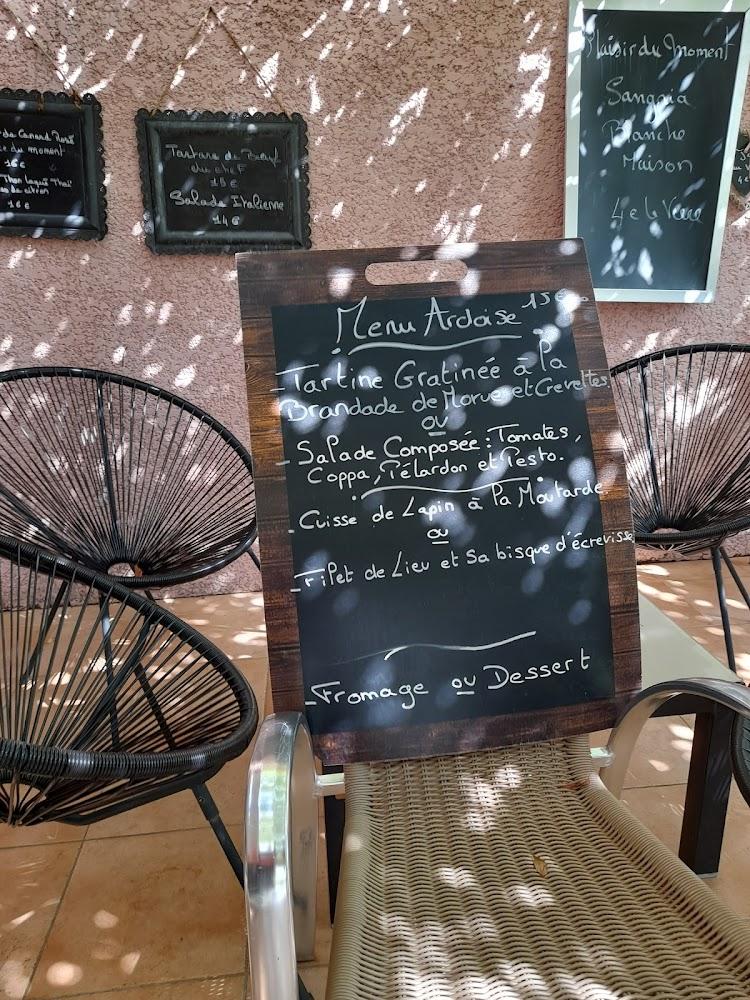 de Canard Rossi
du moment
16€
Thon laqué Thaï
de citron
16€
Tartare de Bœuf
du chef
15€
Salade Italienne
14€
Plaisir du Moment
Sangria
Blanche
Maison
4€ le Verre
Menu Ardoise 15€
- Tartine Gratinée à la
Brandade de Morue et Crevettes
ou
- Salade Composée : Tomates,
Coppa, Pélardon et Pesto.
- Cuisse de Lapin à la Moutarde
ou
- Filet de Lieu et Sa bisque d'écrevisse
- Fromage ou Dessert